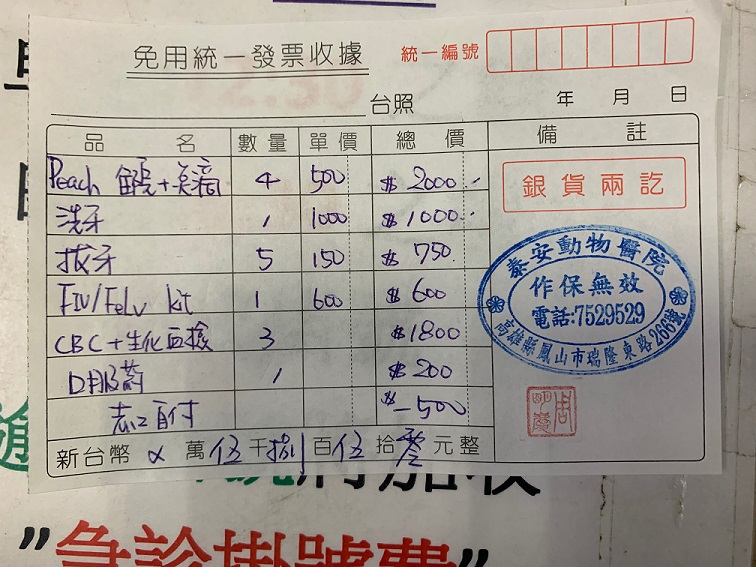 免用統一發票收據
統一編號
台照 年 月 日
品 名 數量 單價 總 價 備 註
Peach 4 500 $ 2000
洗牙 1 1000 $ 1000
拔牙 5 150 $ 750
FIV/FeLV kit 1 600 $ 600
CBC+生化血檢 3 $ 1800
口服藥 1 $ 200
自付 $ -500
新台幣 萬 伍 千 捌 百 伍 拾 零 元整
銀貨兩訖
泰安動物醫院
作保無效
電話:7529529
高雄縣鳳山市瑞隆東路266號
"急診掛號費"